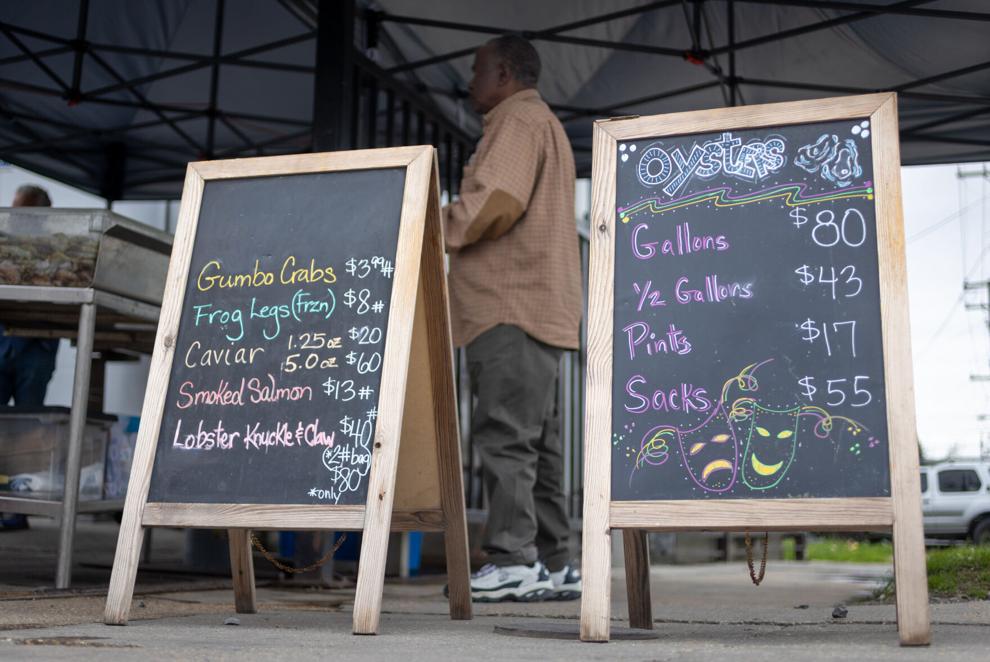 Gumbo Crabs $3.99#
Frog Legs (Frzn) $8#
Caviar 1.25oz $20
5.0oz $60
Smoked Salmon $13#
Lobster Knuckle & Claw $40#
*2# bag
$80
*only
Oysters
Gallons $80
1/2 Gallons $43
Pints $17
Sacks $55